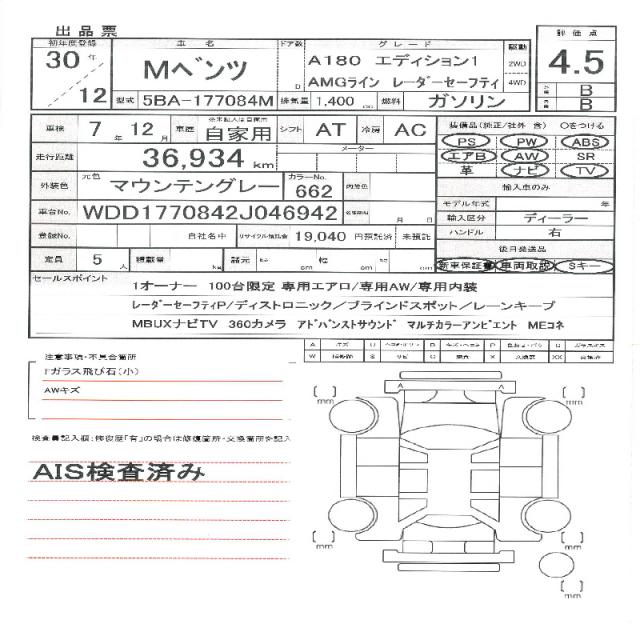 出品票
初年度登録 車名 ドア数 グレード 駆動 評価点
30年 Mベンツ A180 エディション1 2WD 4.5
12 D AMGライン レーダーセーフティ 4WD B
型式 5BA-177084M 排気量 1,400 cc 燃料 ガソリン B
車検 7年 12月 車歴 自家用 シフト AT 冷房 AC 装備品(純正/社外 含) ○をつける
PS PW ABS
走行距離 36,934 km メーター エアB AW SR
革 ナビ TV
外装色 元色 マウンテングレー カラーNo. 662 内装色 輸入車のみ
モデル年式 年
車台No. WDD1770842J046942 月 日 輸入区分 ディーラー
登録No. 自社名中 リサイクル預託金 19,040 円預託済 未預託 ハンドル 右
後日発送品
定員 5人 積載量 kg 諸元 長 cm 幅 cm 高 cm 新車保証書 車両取説 Sキー
セールスポイント
1オーナー 100台限定 専用エアロ/専用AW/専用内装
レーダーセーフティP/ディストロニック/ブラインドスポット/レーンキープ
MBUXナビTV 360カメラ アドバンストサウンド マルチカラーアンビエント MEコネ
A キズ U B キズ・ヘコミ P C
W S サビ X 交換要 XX 交換済
注意事項・不具合箇所
Fガラス飛び石(小)
AWキズ
検査員記入欄:修復歴「有」の場合は修復箇所・交換箇所を記入
AIS検査済み
A A
mm mm
mm mm
mm